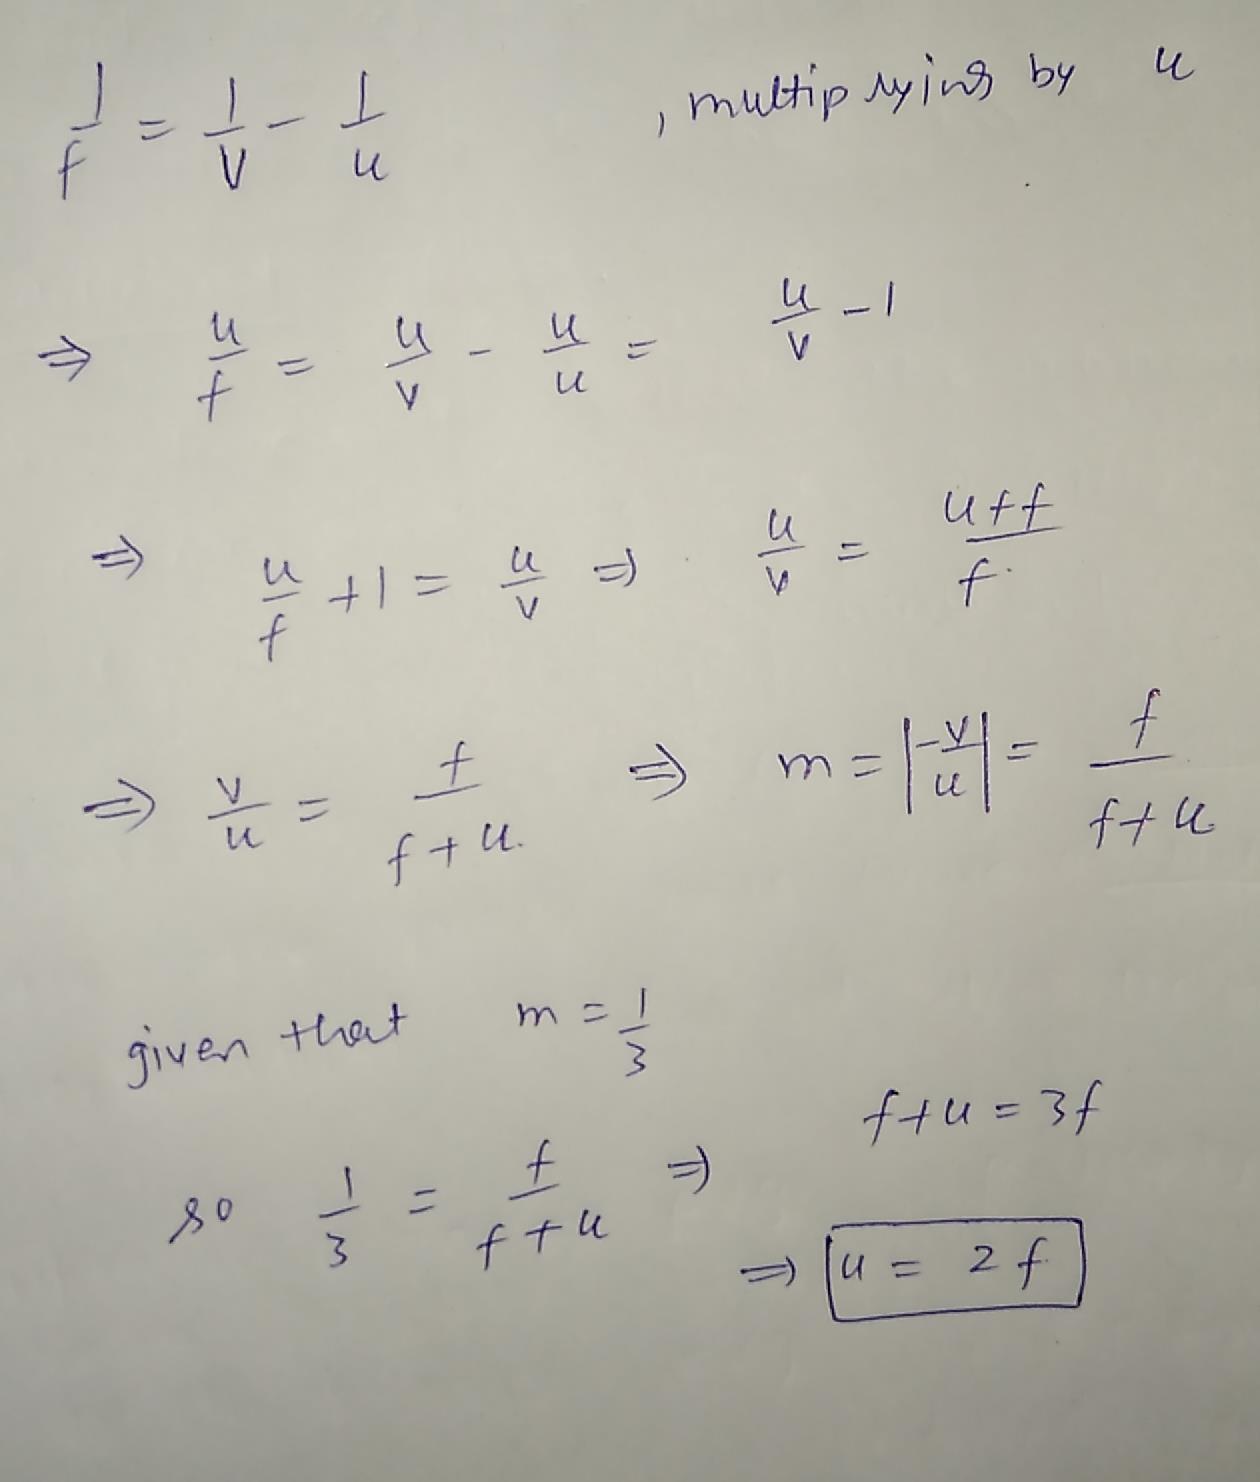 1/f = 1/v - 1/u , multiplying by u
⇒ u/f = u/v - u/u = u/v - 1
⇒ u/f + 1 = u/v ⇒ u/v = u+f/f
⇒ v/u = f/f+u. ⇒ m = |-v/u| = f/f+u
given that m = 1/3
so 1/3 = f/f+u ⇒ f+u = 3f
⇒ u = 2f